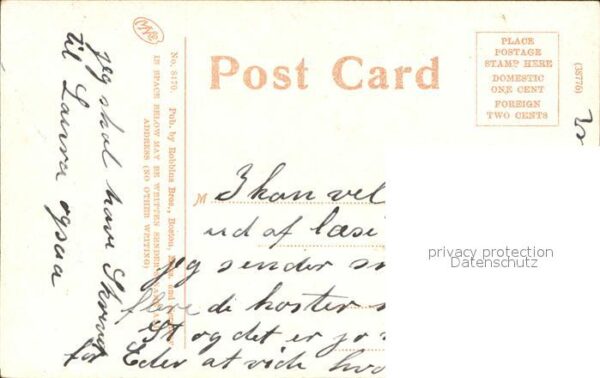 Post Card
PLACE
POSTAGE
STAMP HERE
DOMESTIC
ONE CENT
FOREIGN
TWO CENTS
(38776)
No. 8170. Pub. by Robbins Bros., Boston,
IN SPACE BELOW MAY BE WRITTEN SENDER'S
ADDRESS (NO OTHER WRITING)
jeg skal have
til Laura ogsaa
M
I kan vel
ud af læsi
jeg sender
flere de koster
og det er jo
for Eder at vide hvo
privacy protection
Datenschutz